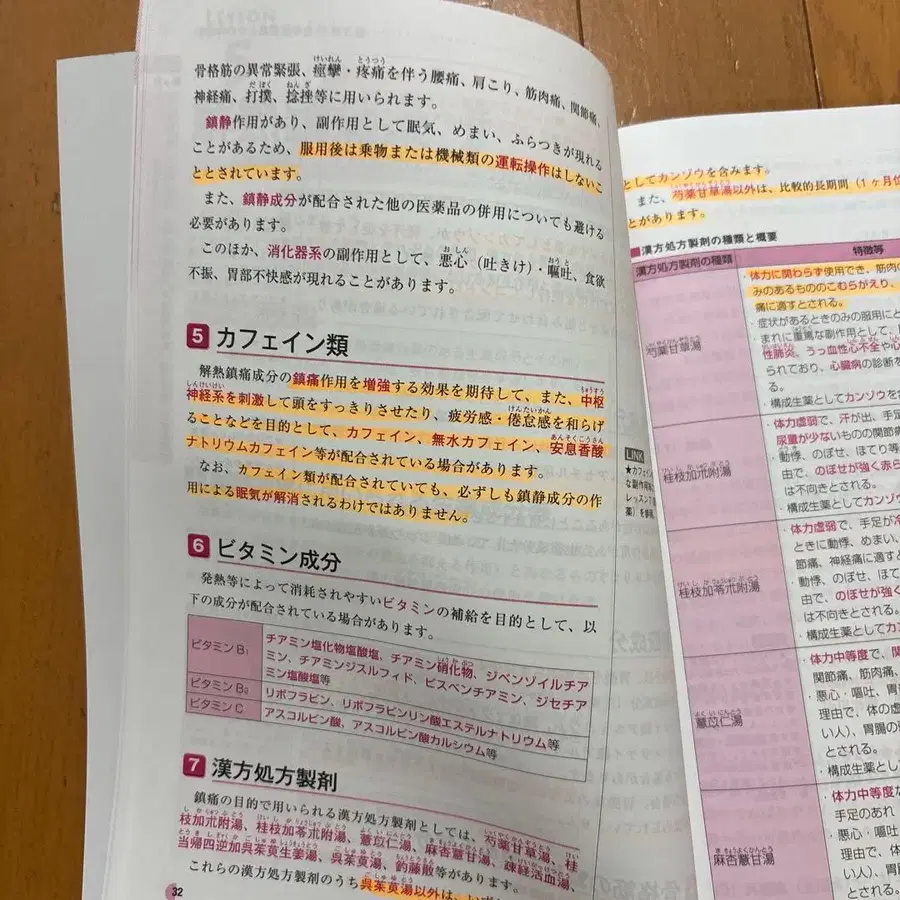 骨格筋の異常緊張、痙攣・疼痛を伴う腰痛、肩こり、筋肉痛、関節痛、
神経痛、打撲、捻挫等に用いられます。
鎮静作用があり、副作用として眠気、めまい、ふらつきが現れる
ことがあるため、服用後は乗物または機械類の運転操作はしないこ
ととされています。
また、鎮静成分が配合された他の医薬品の併用についても避ける
必要があります。
このほか、消化器系の副作用として、悪心（吐きけ）・嘔吐、食欲
不振、胃部不快感が現れることがあります。
5 カフェイン類
解熱鎮痛成分の鎮痛作用を増強する効果を期待して、また、中枢
神経系を刺激して頭をすっきりさせたり、疲労感・倦怠感を和らげ
ることなどを目的として、カフェイン、無水カフェイン、安息香酸
ナトリウムカフェイン等が配合されている場合があります。
なお、カフェイン類が配合されていても、必ずしも鎮静成分の作
用による眠気が解消されるわけではありません。
6 ビタミン成分
発熱等によって消耗されやすいビタミンの補給を目的として、以
下の成分が配合されている場合があります。
ビタミンB1 チアミン塩化物塩酸塩、チアミン硝化物、ジベンゾイルチア
ミン、チアミンジスルフィド、ビスベンチアミン、ジセチア
ミン塩酸塩等
ビタミンB2 リボフラビン、リボフラビンリン酸エステルナトリウム等
ビタミンC アスコルビン酸、アスコルビン酸カルシウム等
7 漢方処方製剤
鎮痛の目的で用いられる漢方処方製剤としては、芍薬甘草湯、桂
枝加朮附湯、桂枝加苓朮附湯、薏苡仁湯、麻杏薏甘湯、疎経活血湯、
当帰四逆加呉茱萸生姜湯、呉茱萸湯、釣藤散等があります。
これらの漢方処方製剤のうち呉茱萸湯以外は、
32
としてカンゾウを含みます。
また、芍薬甘草湯以外は、比較的長期間（1ヶ月位
とがあります。
■漢方処方製剤の種類と概要
漢方処方製剤の種類 特徴等
芍薬甘草湯
・体力に関わらず使用でき、筋肉の
みのあるもののこむらがえり、
痛に適すとされる。
・症状があるときのみの服用にと
・まれに重篤な副作用として、
性肺炎、うっ血性心不全や心
られており、心臓病の診断を
る。
・構成生薬としてカンゾウを
桂枝加朮附湯
・体力虚弱で、汗が出、手足
尿量が少ないものの関節痛
・動悸、のぼせ、ほてり等
由で、のぼせが強く赤ら
は不向きとされる。
・構成生薬としてカンゾウ
桂枝加苓朮附湯
・体力虚弱で、手足が冷
ときに動悸、めまい、
節痛、神経痛に適すと
・動悸、のぼせ、ほて
由で、のぼせが強く
は不向きとされる。
・構成生薬としてカン
薏苡仁湯
・体力中等度で、関
関節痛、筋肉痛、
・悪心・嘔吐、胃
理由で、体の虚
い人）、胃腸の
とされる。
・構成生薬とし
麻杏薏甘湯
・体力中等度な
手足のあれ
・悪心・嘔吐
理由で、体
い人）、胃
とされる。
LINK
★カフェイン
な副作用
レッスン
薬）を参照